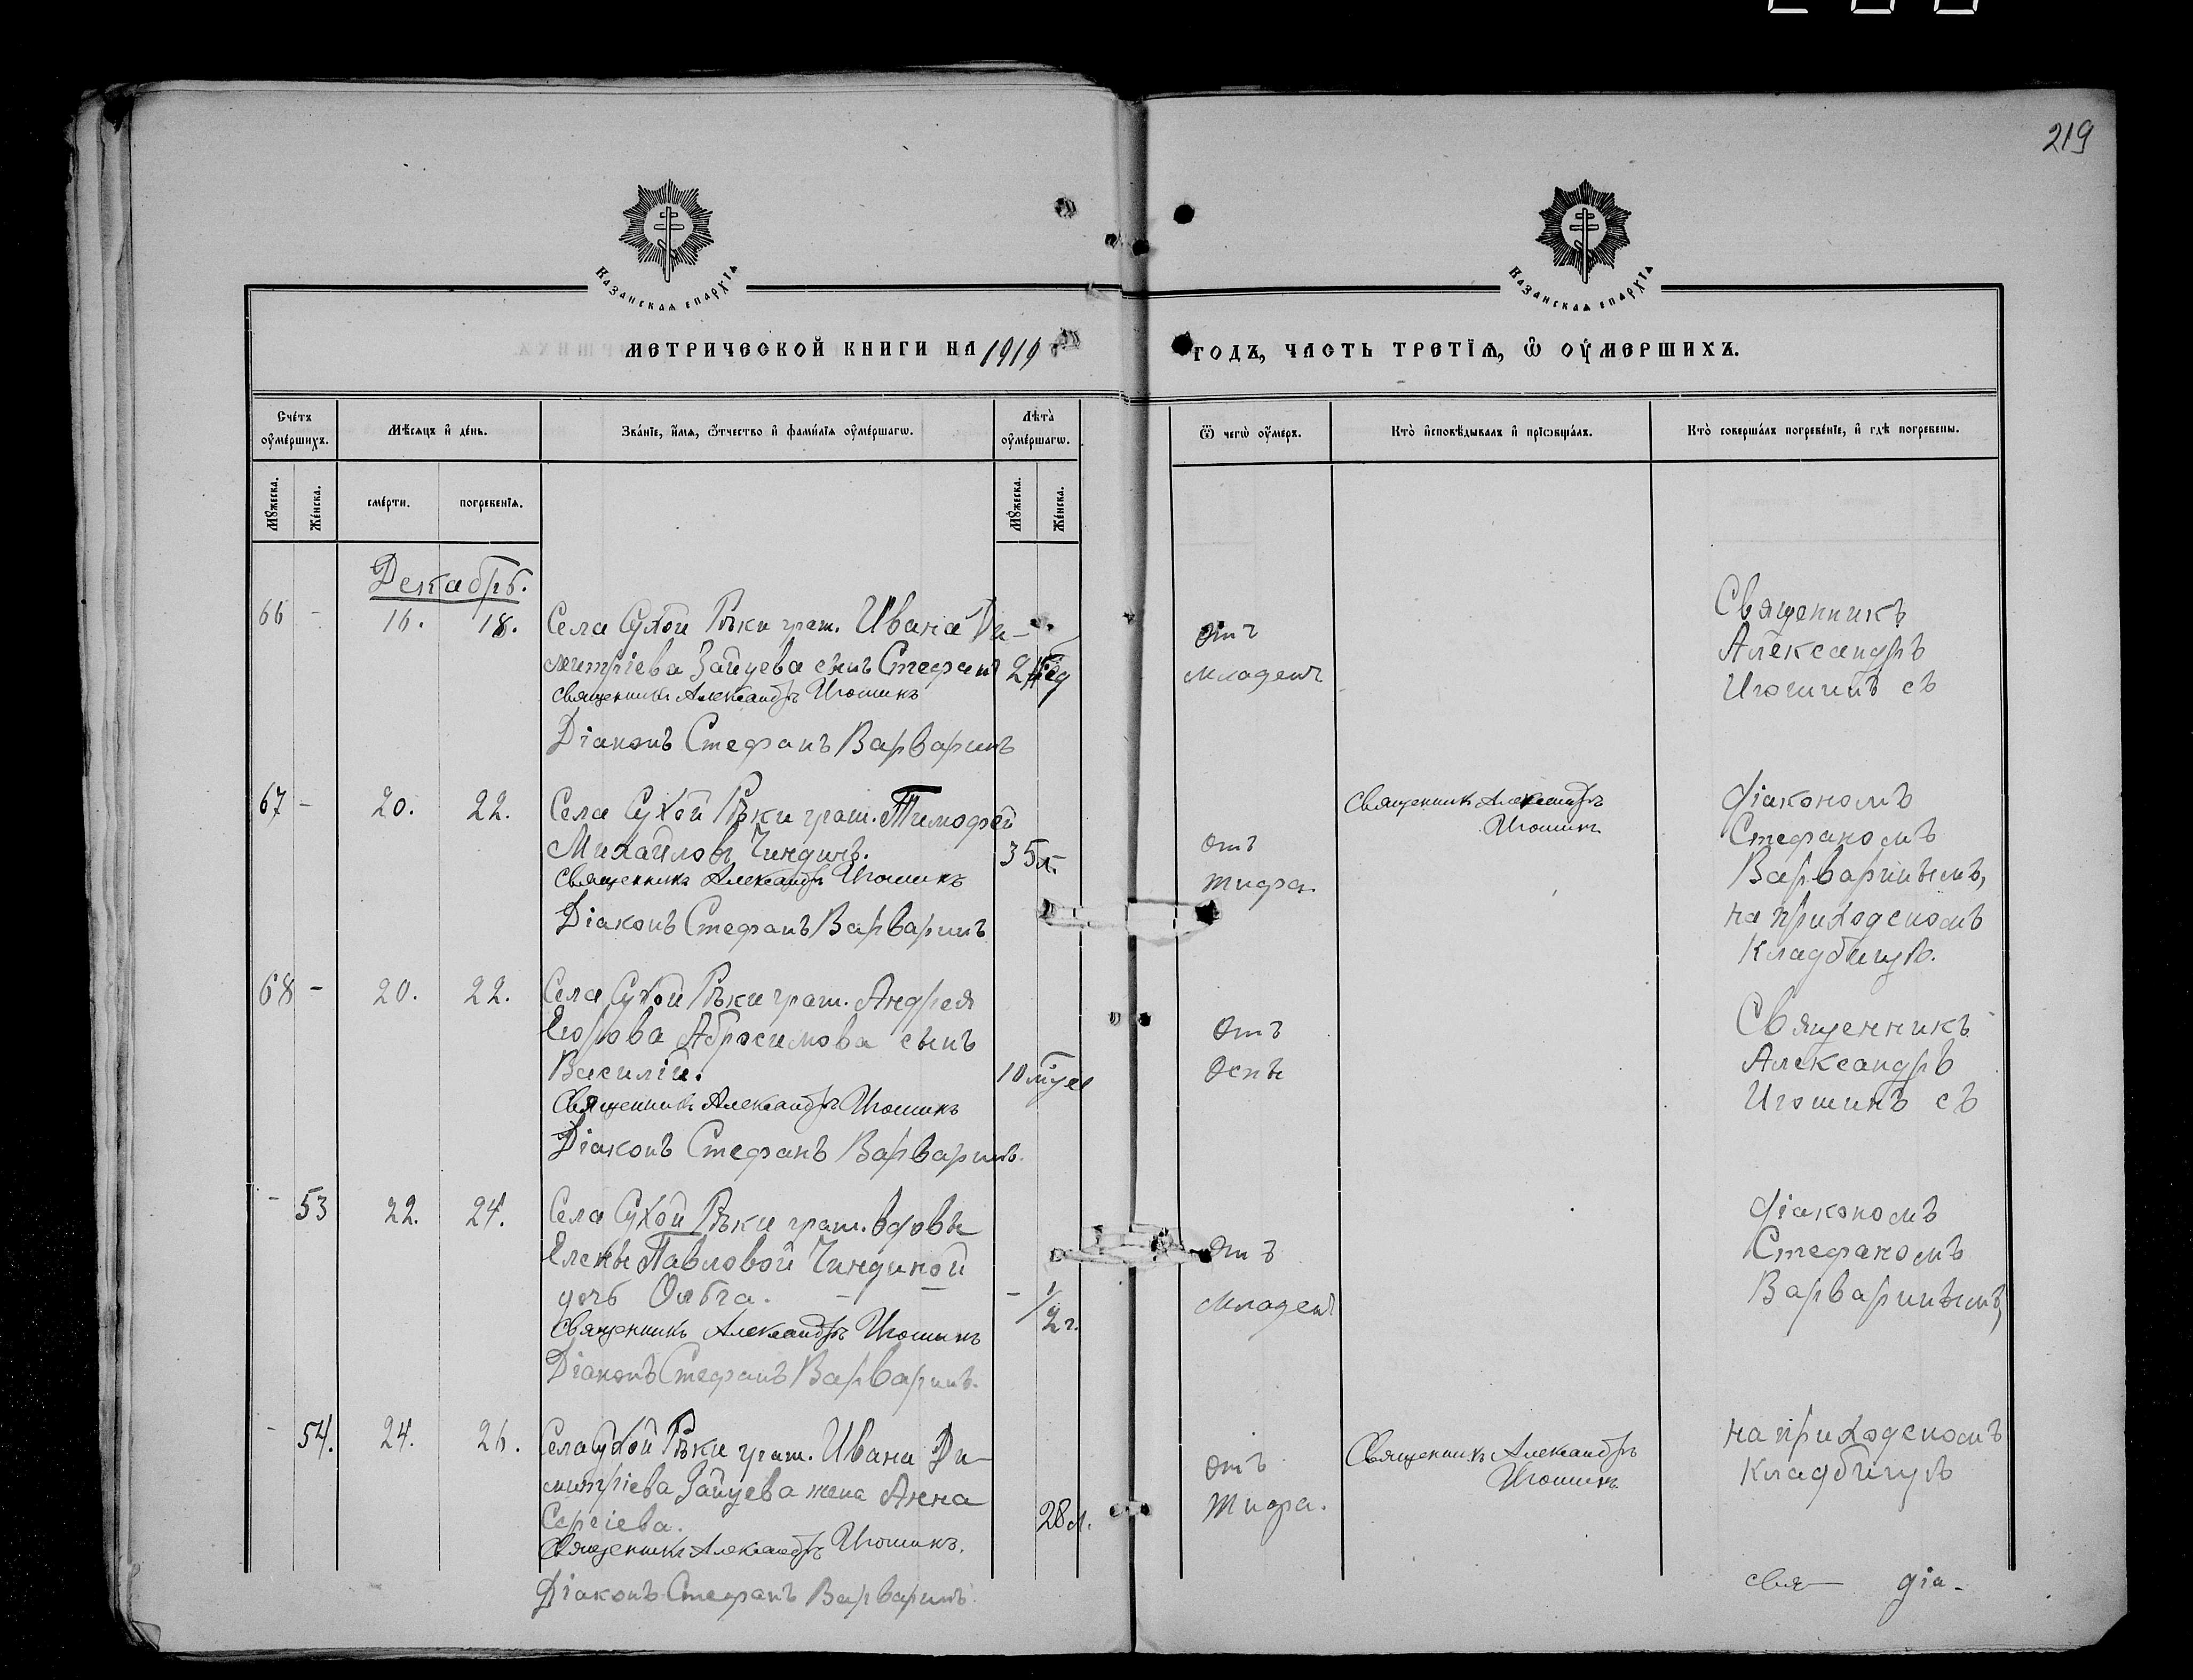 219
КАЗАНСКАѦ ЕПАРХІѦ
КАЗАНСКАѦ ЕПАРХІѦ
МЕТРИЧЕСКОЙ КНИГИ НА 1919 г.
ГОДЪ, ЧАСТЬ ТРЕТІѦ, Ѽ ОУ҆МЕРШИХЪ.
Сче́тъ оу҆ме́ршихъ.
Мѣ́сѧцъ и҆ де́нь.
Зва́нїе, и҆́мѧ, ѻ҆́тчество и҆ фами́лїѧ оу҆ме́ршагѡ.
Лѣ́та оу҆ме́ршагѡ.
Ѿ чегѡ̀ оу҆́меръ.
Кто̀ и҆сповѣ́дывалъ и҆ прїѡбща́лъ.
Кто̀ соверша́лъ погребе́нїе, и҆ гдѣ̀ погребены.
Мꙋ́жеска.
Же́нска.
сме́рти.
погребенїѧ.
Мꙋ́жеска.
Же́нска.
Декабрь.
66 - 16. 18. Села Сухой Рѣки граж. Ивана Ди-
митріева Зайцева сынъ Стефанъ 2 нед
Священникъ Александръ Игошинъ
Діаконъ Стефанъ Варваринъ
отъ
младен
Священникъ
Александръ
Игошинъ съ
67 - 20. 22. Села Сухой Рѣки граж. Тимофей
Михайловъ Чиндинъ. 35 л.
Священникъ Александръ Игошинъ
Діаконъ Стефанъ Варваринъ
отъ
тифа.
Священникъ Александръ
Игошинъ
діакономъ
Стефаномъ
Варваринымъ,
на приходскомъ
кладбищѣ.
68 - 20. 22. Села Сухой Рѣки граж. Андрея
Егорова Абросимова сынъ
Василій. 10 мѣсе
Священникъ Александръ Игошинъ
Діаконъ Стефанъ Варваринъ.
Отъ
Оспы
Священникъ
Александръ
Игошинъ съ
- 53 22. 24. Села Сухой Рѣки граж. вдовы
Елены Павловой Чиндиной
дочь Ольга. - 1/2 г.
Священникъ Александръ Игошинъ
Діаконъ Стефанъ Варваринъ.
Отъ
младен
діакономъ
Стефаномъ
Варваринымъ,
- 54. 24. 26. Села Сухой Рѣки граж. Ивана Ди-
митріева Зайцева жена Анна
Сергіева. 28 л.
Священникъ Александръ Игошинъ.
Діаконъ Стефанъ Варваринъ
отъ
Тифа.
Священникъ Александръ
Игошинъ
на приходскомъ
кладбищѣ
свя- діа-